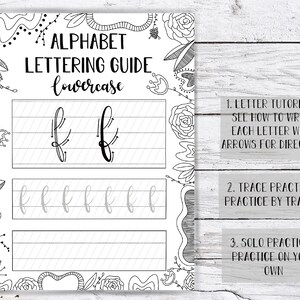 ALPHABET
LETTERING GUIDE
lowercase
f f
f f f f f f f
1. LETTER TUTOR
SEE HOW TO WR
EACH LETTER W
ARROWS FOR DIREC
2. TRACE PRACT
PRACTICE BY TRA
3. SOLO PRACTI
PRACTICE ON YO
OWN